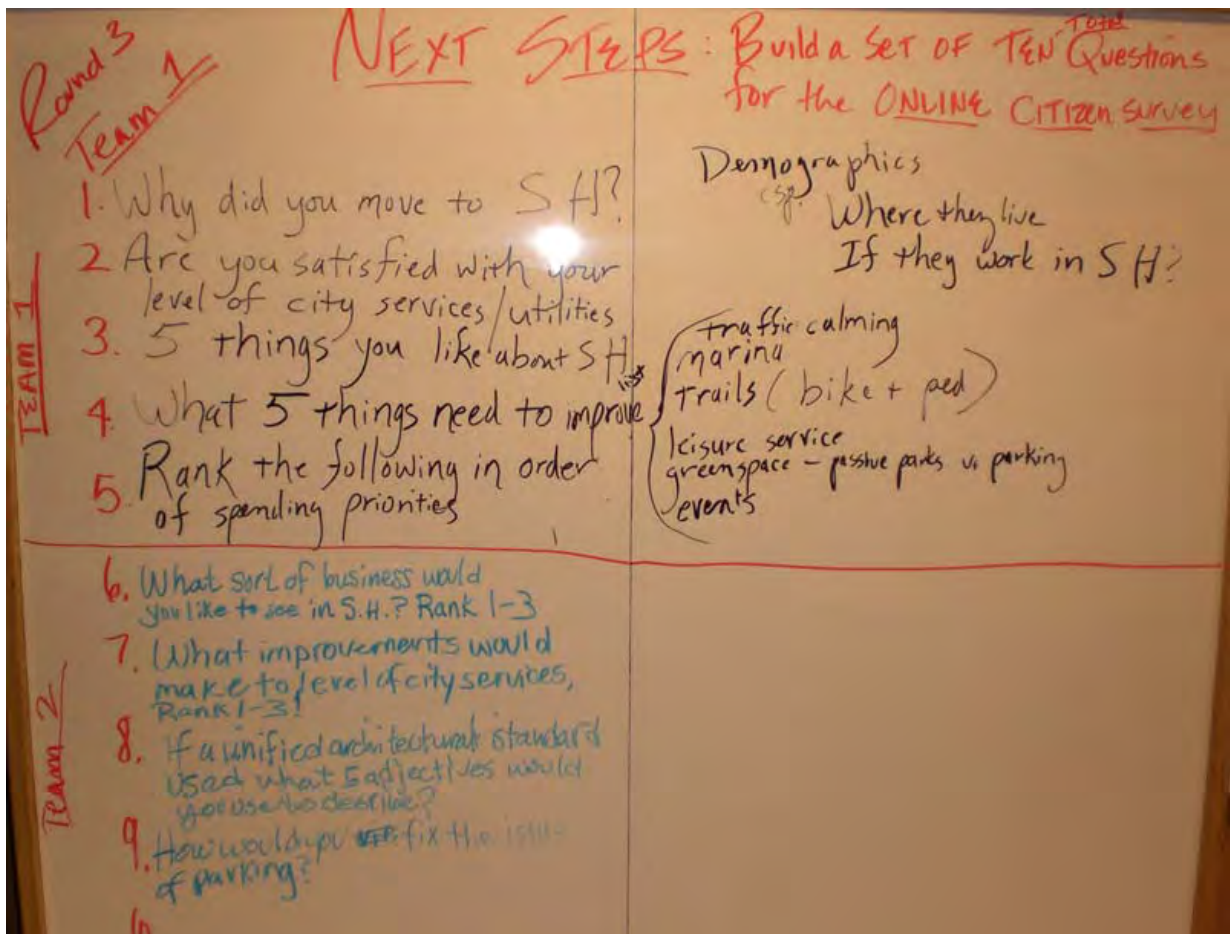 Round 3
Team 1
NEXT STEPS: Build a Set OF TEN Total Questions
for the ONLINE CITIZEN Survey
TEAM 1
1. Why did you move to SH?
2 Are you satisfied with your
level of city services/utilities
3. 5 things you like about SH
4. What 5 things need to improve
5. Rank the following in order
of spending priorities
Demographics
Where they live
If they work in SH?
traffic calming
marina
trails (bike + ped)
leisure service
greenspace - passive parks vs parking
events
Team 2
6. What sort of business would
you like to see in S.H.? Rank 1-3
7. What improvements would
make to level of city services,
Rank 1-3!
8. If a unified architectural standard
used what 5 adjectives would
you use to describe?
9. How would you fix the
of parking?